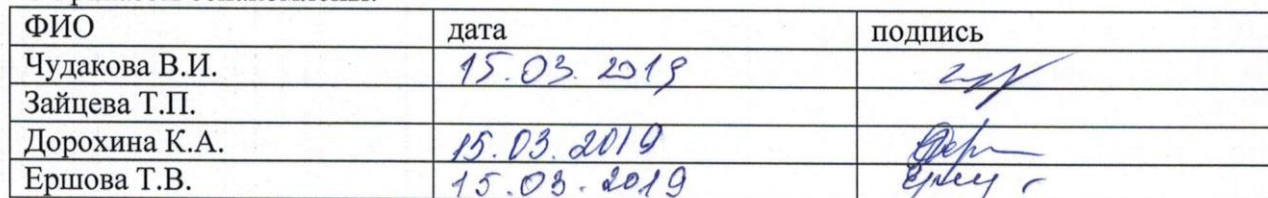 ФИО дата подпись
Чудакова В.И. 15.03.2019
Зайцева Т.П.
Дорохина К.А. 15.03.2019
Ершова Т.В. 15.03.2019